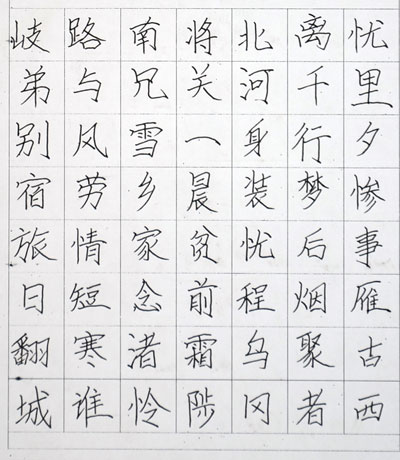 岐路南将北离忧
弟与兄关河千里
别风雪一身行夕
宿劳乡晨装梦惨
旅情家贫忧后事
日短念前程烟雁
翻寒渚霜乌聚古
城谁怜陟冈者西